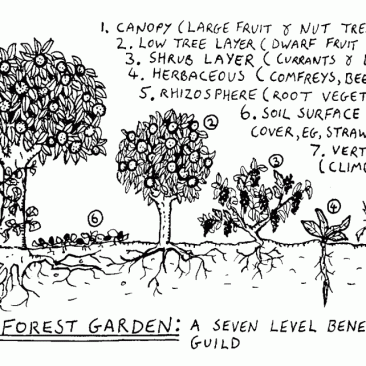 1. CANOPY (LARGE FRUIT & NUT TREE
2. LOW TREE LAYER (DWARF FRUIT
3. SHRUB LAYER (CURRANTS &
4. HERBACEOUS (COMFREYS, BEE
5. RHIZOSPHERE (ROOT VEGET
6. SOIL SURFACE
COVER, EG, STRAW
7. VERT
(CLIM
2
3
6
4
FOREST GARDEN: A SEVEN LEVEL BENE
GUILD